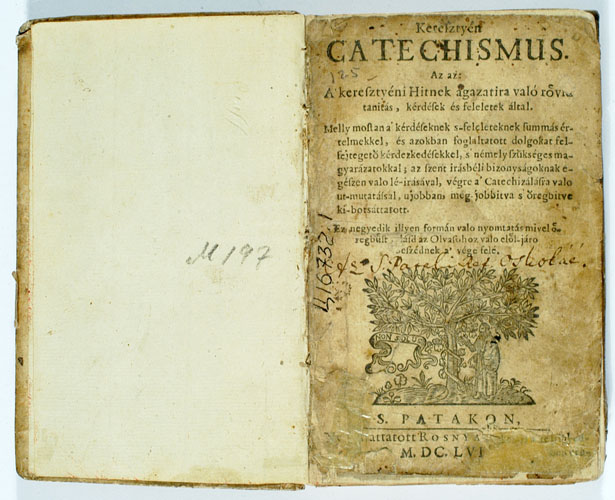 M 197
Keresztyén
CATECHISMUS.
125
Az az:
A' keresztyéni Hitnek ágazatira való rövid
tanitás, kérdések és feleletek által.
Melly mostan a' kérdéseknek s-feleleteknek summás ér-
telmekkel, és azokban foglaltatott dolgokat fel-
fejtegetö kérdezkedésekkel, s némely szükséges ma-
gyarázatokkal; az szent irásbéli bizonyságoknak e-
gészen valo lé-irásával, végre a' Catechizálásra valo
ut-mutatással, ujobban még jobbitva s öregbitve
ki-botsáttatott.
Ez negyedik illyen formán valo nyomtatás mivel ö-
regbült lásd az Olvasohoz valo elöl-járo
beszédnek a' vége felé.
S. Pataki Oskoláé.
416732
NON SOLUS
S. PATAKON,
ROSNYAI
M. DC. LVI